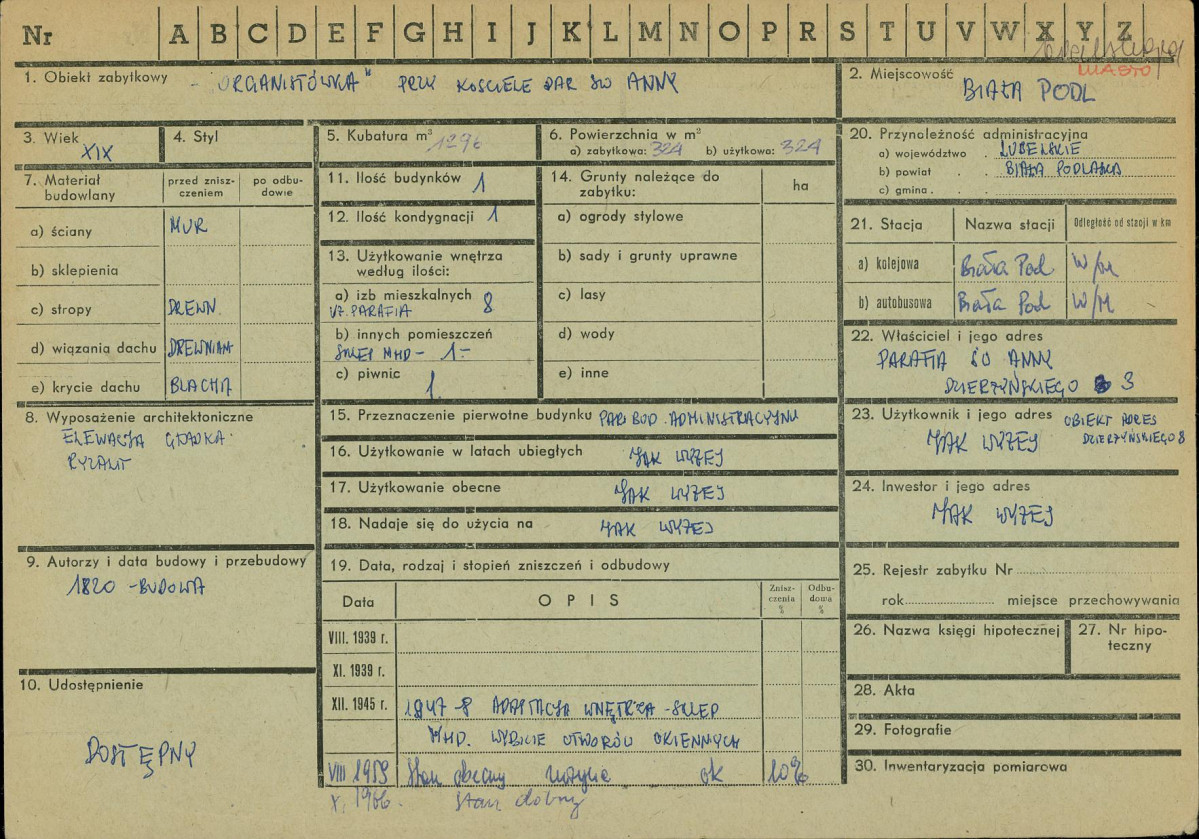 Nr A B C D E F G H I J K L M N O P R S T U V W X Y Z
MIASTO
1. Obiekt zabytkowy - "ORGANISTÓWKA" PRZY KOSCIELE PAR ŚW ANNY
2. Miejscowość BIAŁA PODL
3. Wiek XIX
4. Styl
5. Kubatura m³ 1296
6. Powierzchnia w m²
a) zabytkowa: 324 b) użytkowa: 324
7. Materiał budowlany
przed znisz-
czeniem
po odbu-
dowie
a) ściany MUR
b) sklepienia
c) stropy DREWN.
d) wiązania dachu DREWNIAN
e) krycie dachu BLACHA
8. Wyposażenie architektoniczne
ELEWACJA GŁADKA
RYZALIT
9. Autorzy i data budowy i przebudowy
1820 - BUDOWA
10. Udostępnienie
DOSTĘPNY
11. Ilość budynków 1
12. Ilość kondygnacji 1
13. Użytkowanie wnętrza
według ilości:
a) izb mieszkalnych 8
UŻ. PARAFIA
b) innych pomieszczeń
SKLEP MHD - 1-
c) piwnic 1.
14. Grunty należące do
zabytku:
ha
a) ogrody stylowe
b) sady i grunty uprawne
c) lasy
d) wody
e) inne
15. Przeznaczenie pierwotne budynku PAR BUD. ADMINISTRACYJNY
16. Użytkowanie w latach ubiegłych JAK WYŻEJ
17. Użytkowanie obecne JAK WYŻEJ
18. Nadaje się do użycia na JAK WYŻEJ
19. Data, rodzaj i stopień zniszczeń i odbudowy
Data OPIS
Znisz-
czenia
%
Odbu-
dowa
%
VIII. 1939 r.
XI. 1939 r.
XII. 1945 r. 1947-8 ADAPTACJA WNĘTRZA - SKLEP
MHD. WYBICIE OTWORÓW OKIENNYCH
VIII 1959 Stan obecny zużycie ok 10%
X. 1966. Stan dobry
20. Przynależność administracyjna
a) województwo . LUBELSKIE
b) powiat . . BIAŁA PODLASKA
c) gmina . .
21. Stacja Nazwa stacji Odległość od stacji w km
a) kolejowa Biała Pod W/M
b) autobusowa Biała Pod W/M
22. Właściciel i jego adres
PARAFIA ŚW ANNY
DZIERŻYŃSKIEGO 3
23. Użytkownik i jego adres OBIEKT ADRES
JAK WYŻEJ DZIERŻYŃSKIEGO 8
24. Inwestor i jego adres
JAK WYŻEJ
25. Rejestr zabytku Nr
rok miejsce przechowywania
26. Nazwa księgi hipotecznej
27. Nr hipo-
teczny
28. Akta
29. Fotografie
30. Inwentaryzacja pomiarowa